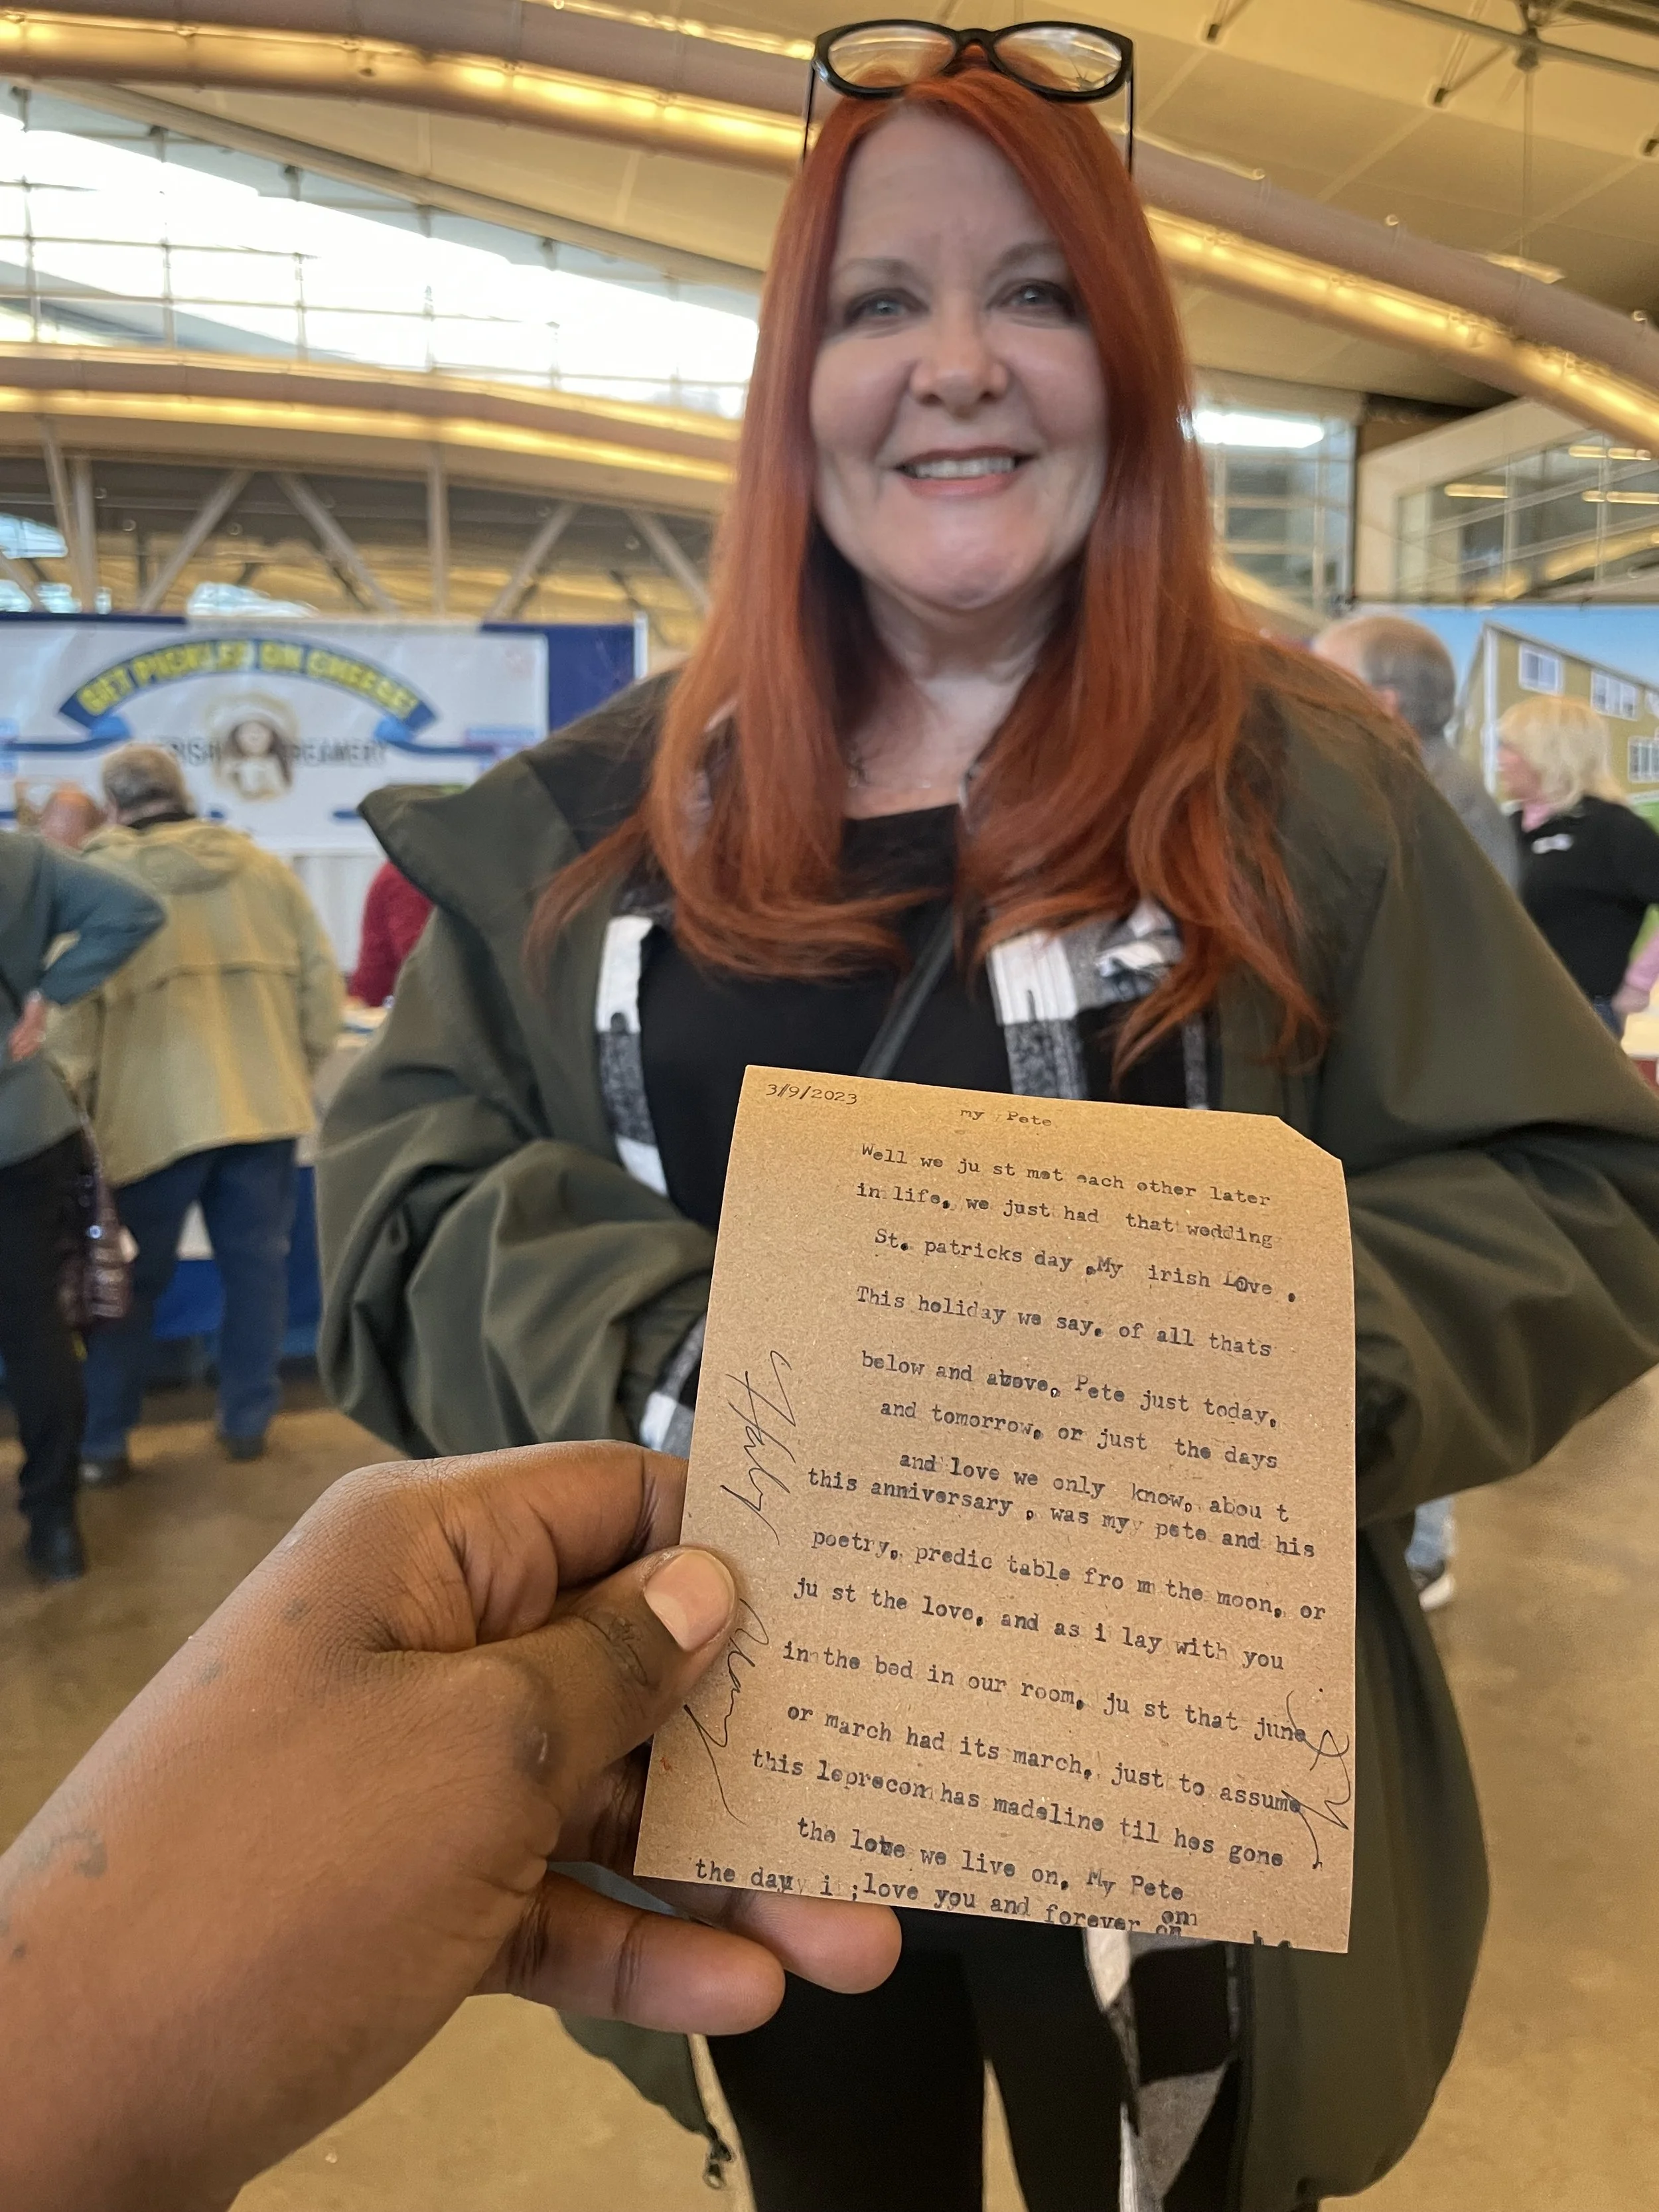 GET PICKLED ON CHEESE!
CREAMERY
3/9/2023
my Pete
Well we ju st met each other later
in life, we just had that wedding
St. patricks day ,My irish Love .
This holiday we say, of all thats
below and above, Pete just today,
and tomorrow, or just the days
and love we only know, abou t
this anniversary , was myy pete and his
poetry, predic table fro m the moon, or
ju st the love, and as i lay with you
in the bed in our room, ju st that june
or march had its march, just to assume
this leprecon has madeline til hes gone
the love we live on, My Pete
the day i ;love you and forever on
om